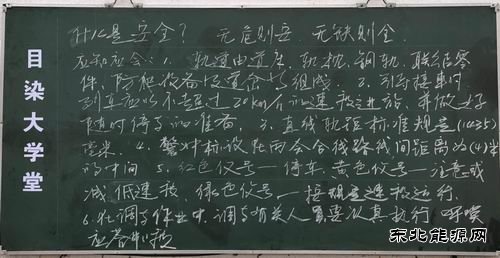 目染大学堂
什么是安全? 无危则安 无缺则全
应知应会:1、轨道由道床、轨枕、钢轨、联结零
件、防爬设备及道岔等组成 2、引导接车时
列车应以不超过20km/h的速度进站,并做好
随时停车的准备。3、直线轨距标准规定(1435)
毫米。4、警冲标设在两会合线路线间距离为(4)米
的中间 5、红色信号—停车,黄色信号—注意或
减低速度,绿色信号—按规定速度运行。
6、在调车作业中,调车有关人员要认真执行 呼唤
应答制度
东北能源网